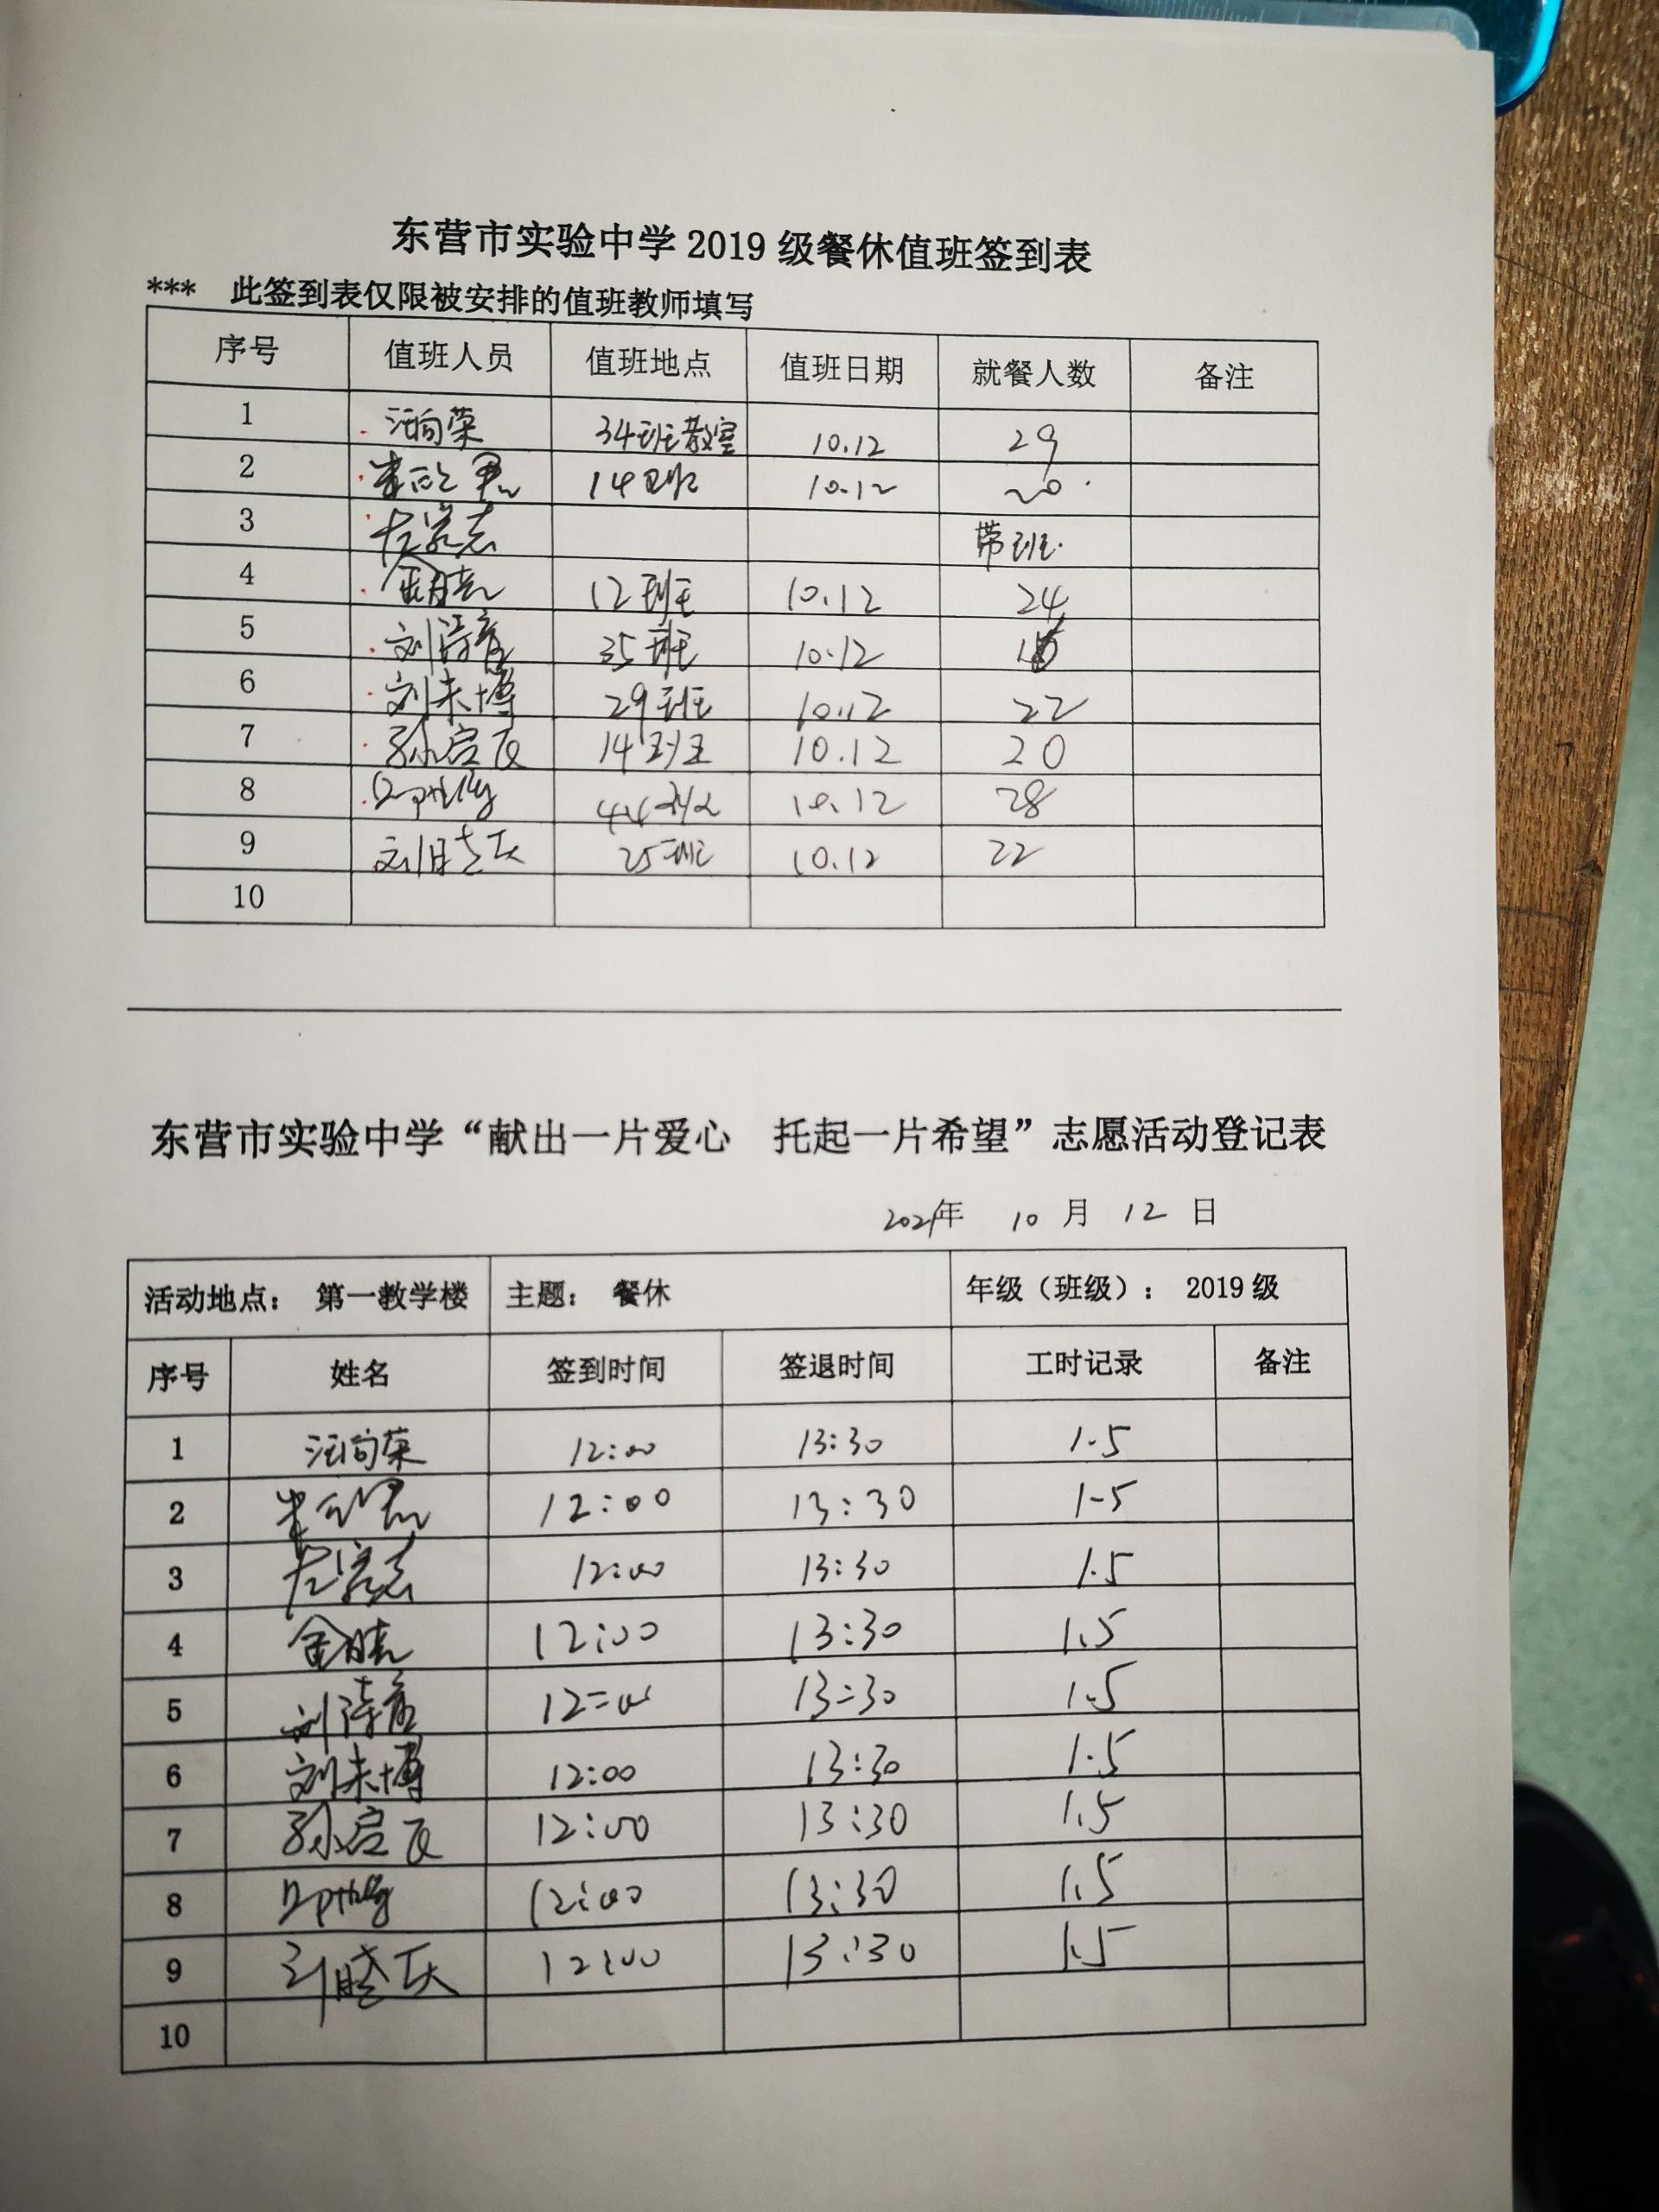 东营市实验中学2019级餐休值班签到表
*** 此签到表仅限被安排的值班教师填写
序号 值班人员 值班地点 值班日期 就餐人数 备注
1 汪向荣 34班教室 10.12 29
2 14班 10.12 20
3 带班
4 金晓 12班 10.12 24
5 刘诗 35班 10.12
6 刘未博 29班 10.12 22
7 孙启 14班 10.12 20
8 44班 10.12 28
9 刘晓庆 25班 10.12 22
10
东营市实验中学“献出一片爱心 托起一片希望”志愿活动登记表
2021年 10 月 12 日
活动地点： 第一教学楼 主题： 餐休 年级（班级）： 2019级
序号 姓名 签到时间 签退时间 工时记录 备注
1 汪向荣 12:00 13:30 1.5
2 12:00 13:30 1.5
3 12:00 13:30 1.5
4 金晓 12:00 13:30 1.5
5 刘诗 12:00 13:30 1.5
6 刘未博 12:00 13:30 1.5
7 孙启 12:00 13:30 1.5
8 12:00 13:30 1.5
9 刘晓庆 12:00 13:30 1.5
10